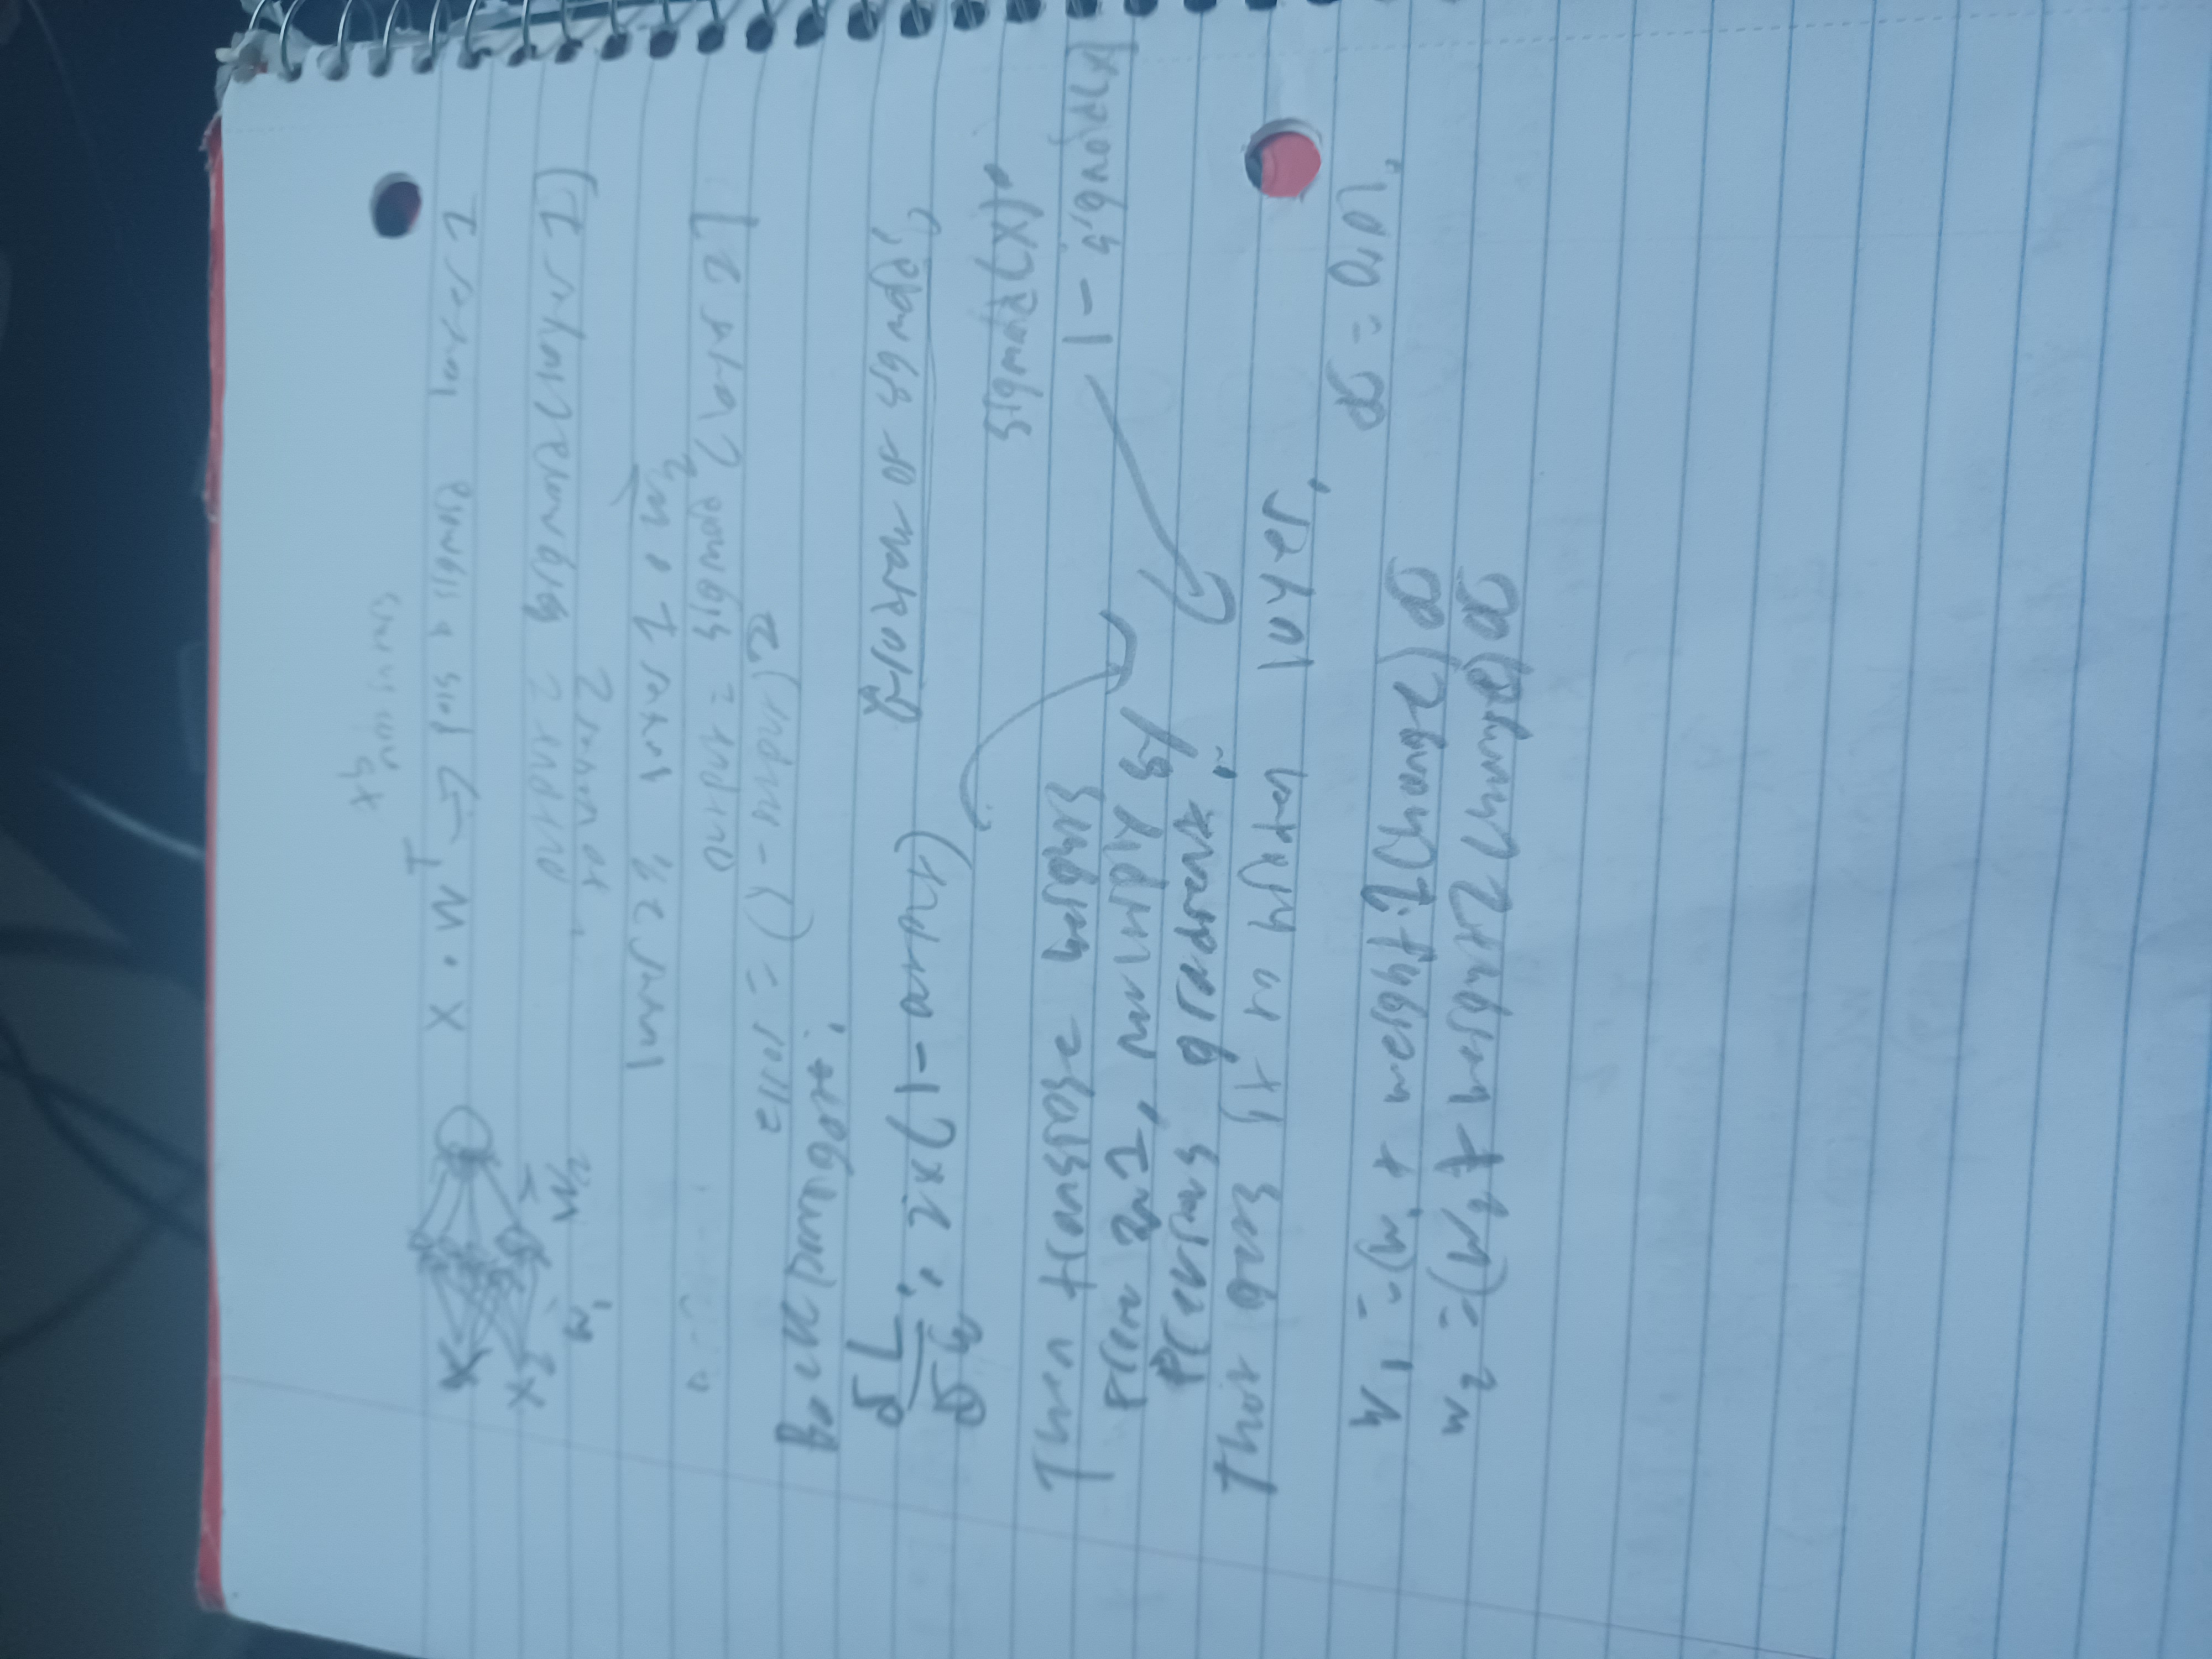 X₁
X₂
w₁ W₂
X · W^T → pass to sigmoid layer 1
output = sigmoid(layer 1)
layer 2: layer 1 · w₂
output = sigmoid(layer 2)
error = (y - output)2
Back
δL/δ : 2x(1 - output)
of sigmoid:
sigmoid(x) •
1 - sigmoid(x)
Then transpose weights
from 2 1, multiply by
previous gradient.
That gets it to hidden layer.
α = 0.01.
w₁ = (w₁ + weight 1 change) α
w₂ = (w₂ + weight 2 change) α